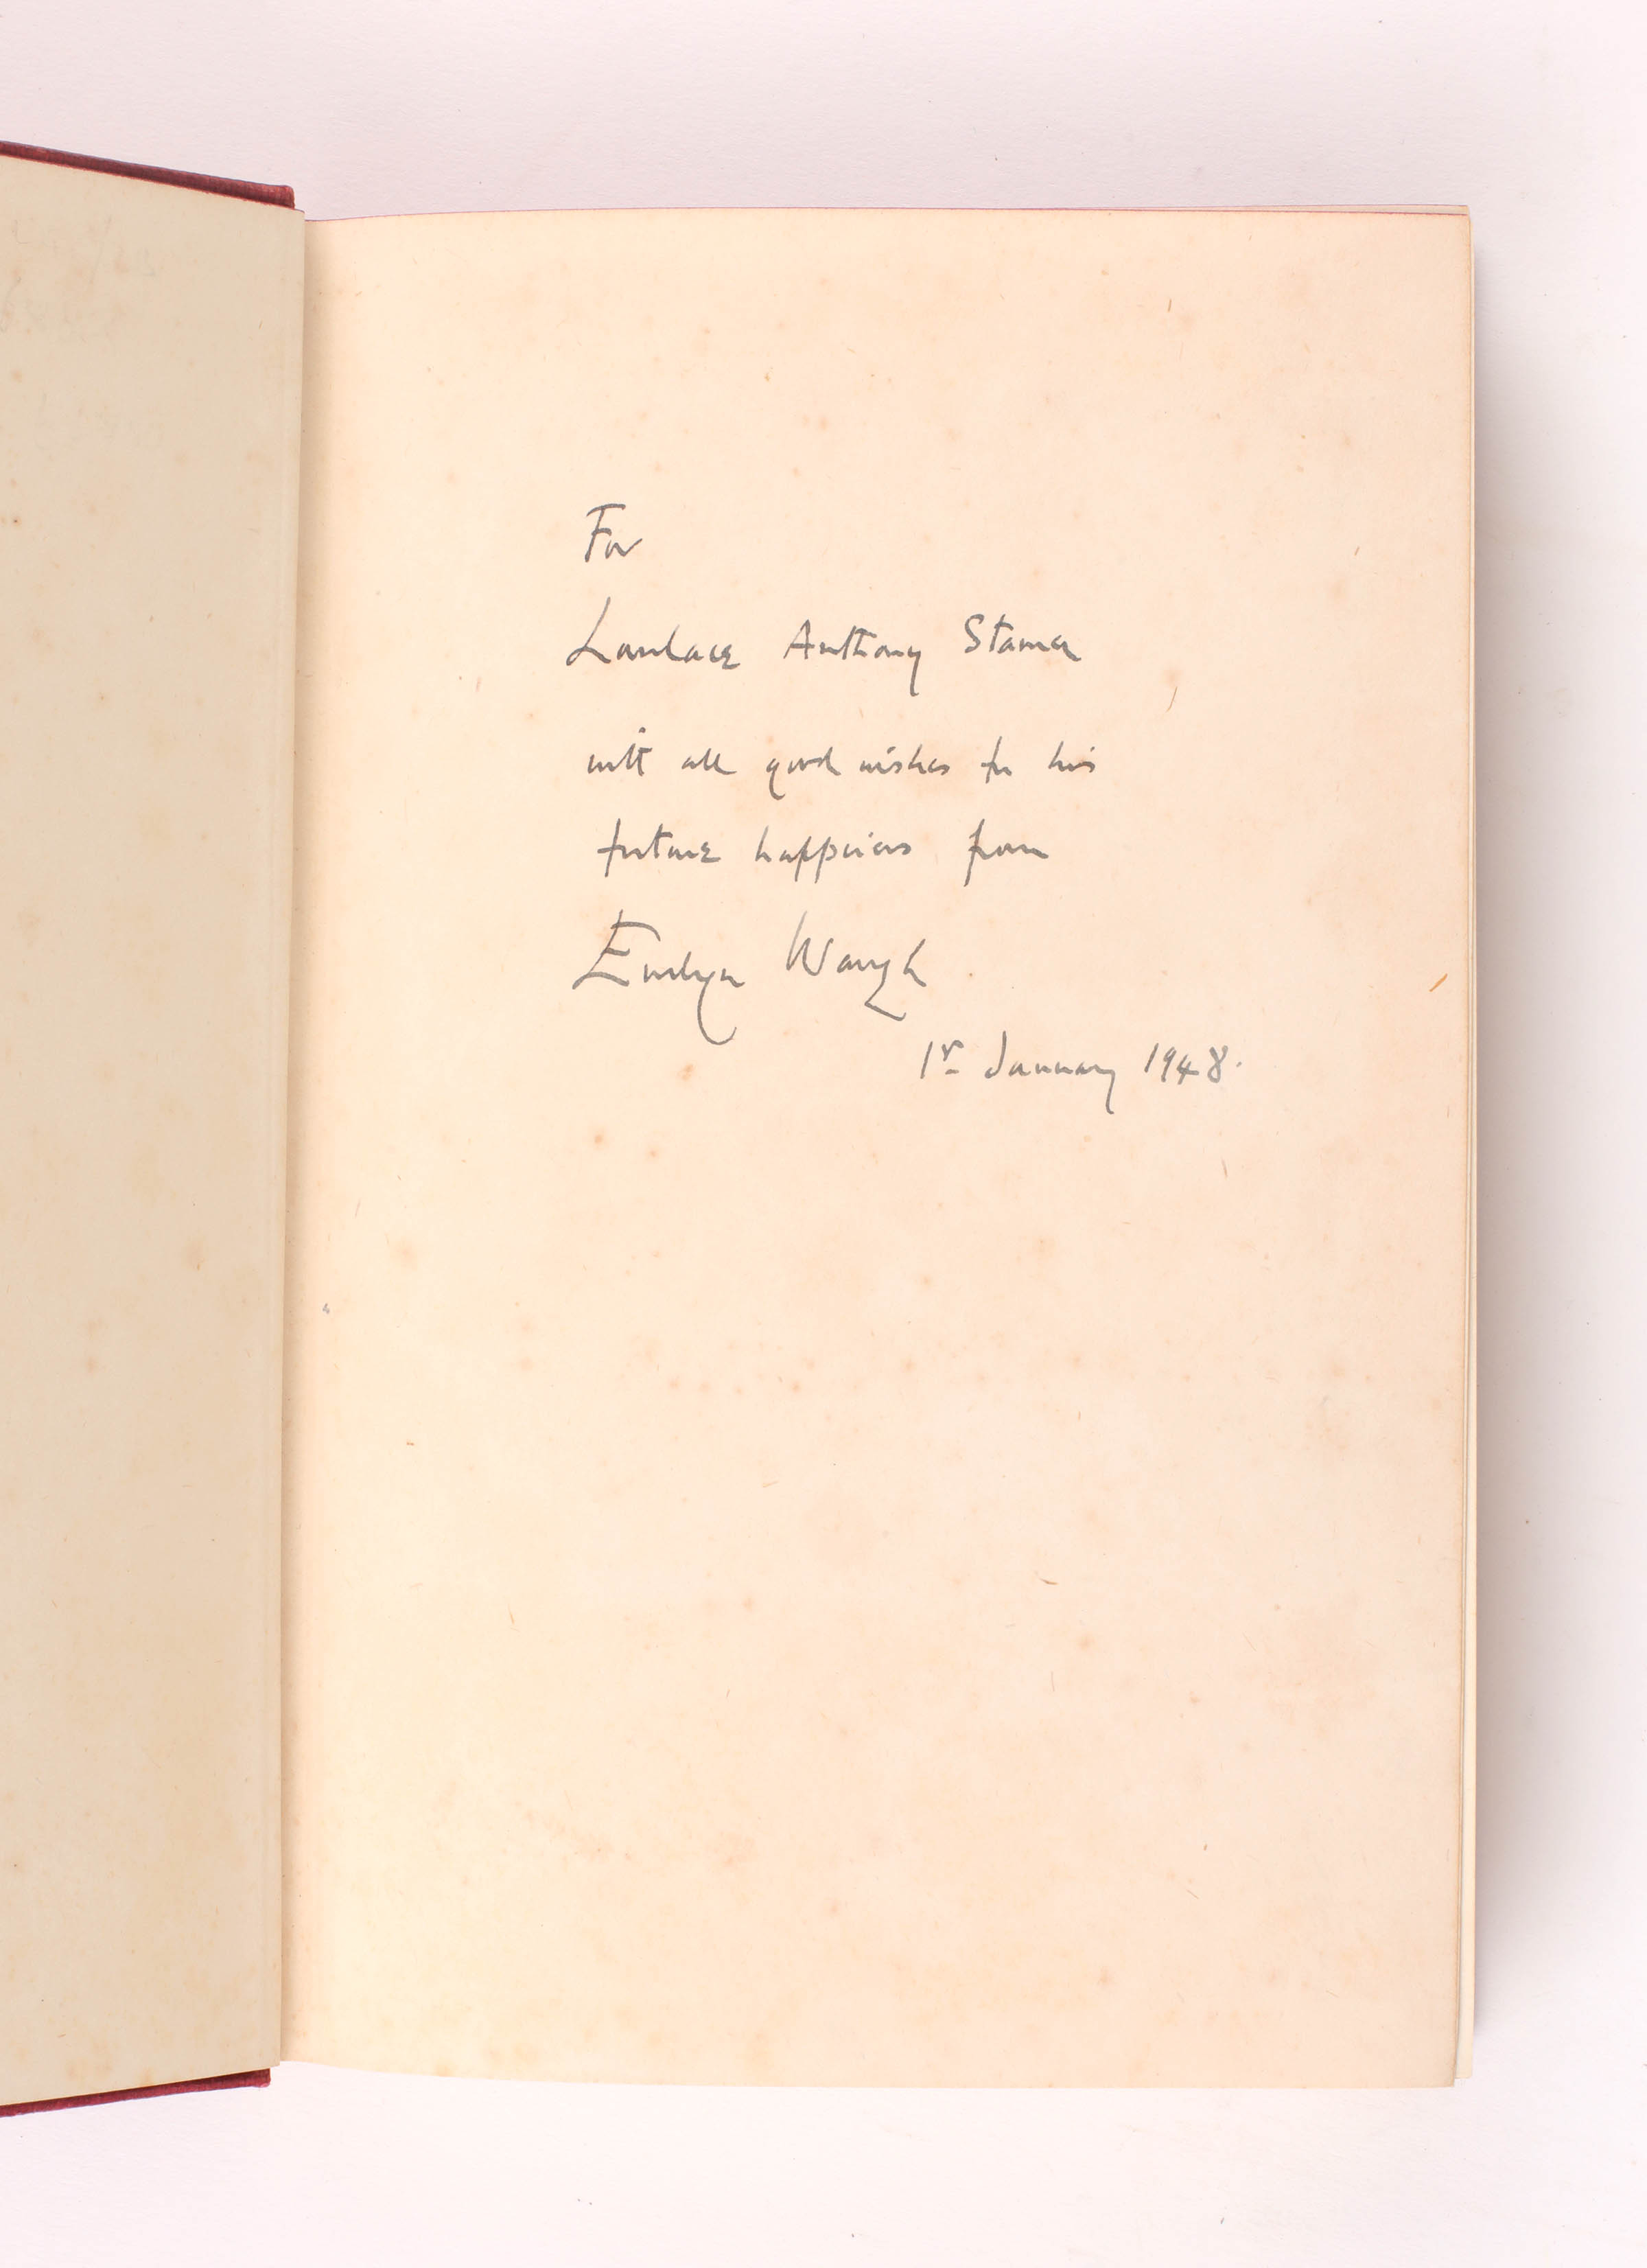 For
Lovelace Anthony Stamer
with all good wishes for his
future happiness from
Evelyn Waugh
1st January 1948.